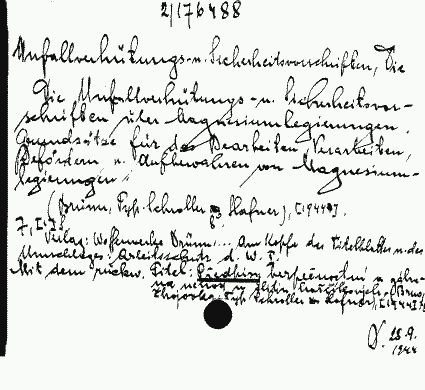 2/176488
Unfallverhütungs- u. Sicherheitsvorschriften, Die
Die Unfallverhütungs- u. Sicherheitsvor-
schriften über Magnesiumlegierungen.
Grundsätze für das Bearbeiten, Verarbeiten,
Befördern u. Aufbewahren von Magnesium-
legierungen.
(Brünn, Typ. Schroller & Hafner), [1944].
7, [1]
Verlag: Waffenwerke Brünn... Am Kopfe des Titelblattes u. des
Umschlages: Arbeitsschutz d. W. B.
Mit dem rückw. Titel: Předpisy bezpečnostní
Typ. Schroller & Hafner), [1944]
28.9.
1944